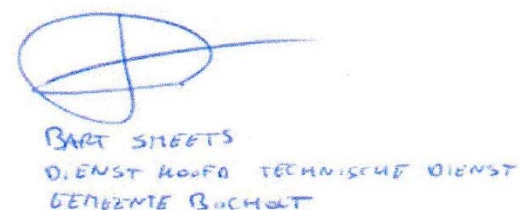 BART SMEETS
DIENST HOOFD TECHNISCHE DIENST
GEMEENTE BOCHOLT